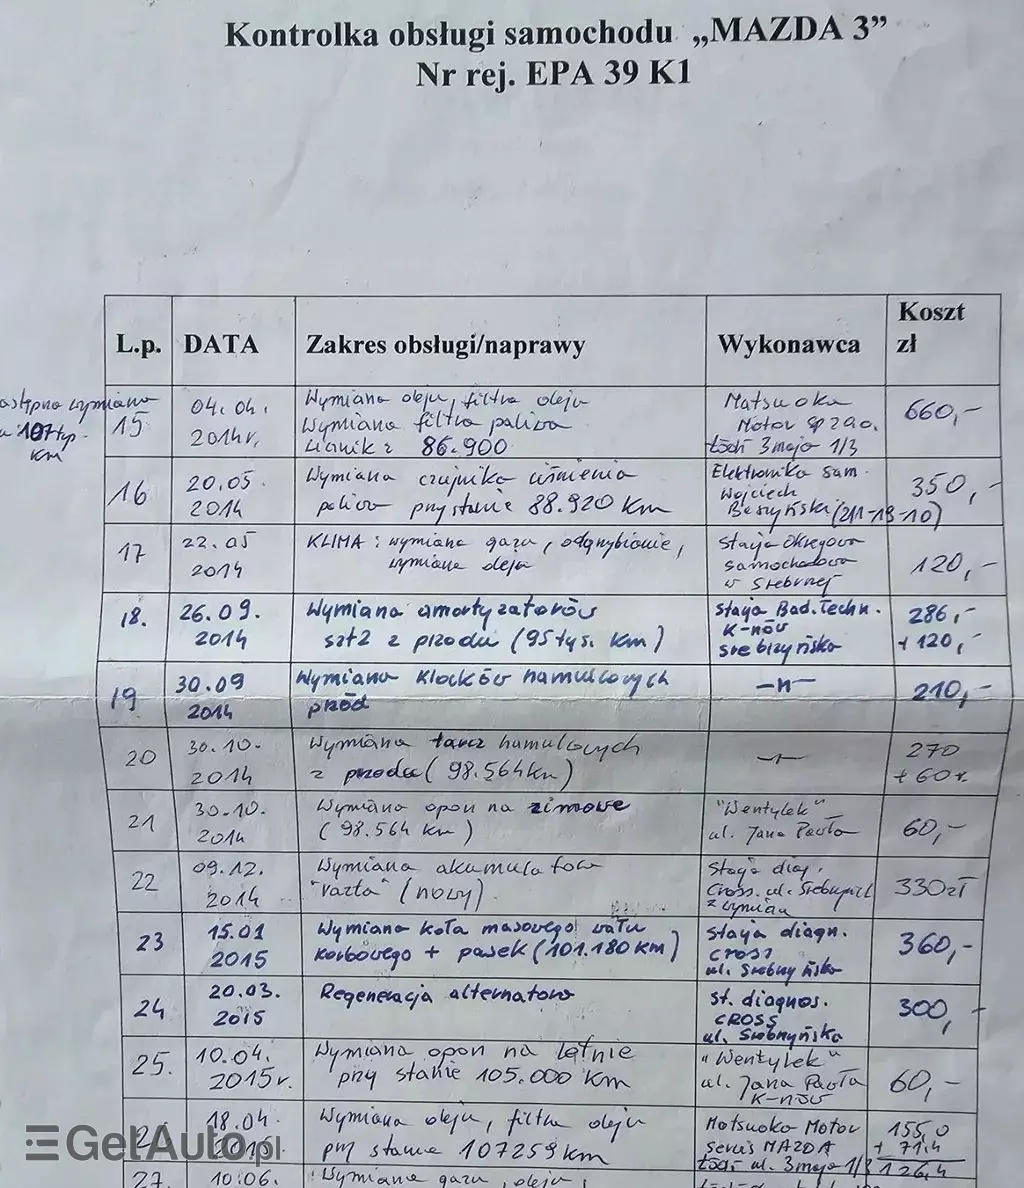 Kontrolka obsługi samochodu „MAZDA 3”
Nr rej. EPA 39 K1
L.p. DATA Zakres obsługi/naprawy Wykonawca Koszt zł
następna wymiana
107 tyś.
km
15 04.04.2014r. Wymiana oleju, filtra oleju
Wymiana filtra paliwa
Licznik: 86.900
Matsuoka
Motor Sp z o.o.
Łódź 3 maja 1/3
660,-
16 20.05.2014 Wymiana czujnika ciśnienia
paliwa przy stanie 88.920 km
Elektronika Sam.
Wojciech
(211-19-10)
350,-
17 22.05 2014 KLIMA: wymiana gazu, odgrzybianie,
wymiana oleju
Stacja Okręgowa
Samochodowa
w Srebrnej
120,-
18. 26.09.2014 Wymiana amortyzatorów
szt 2 z przodu (95 tyś. km)
Stacja Bad. Techn.
K-nów
srebrzyńska
286,-
+ 120,-
19 30.09 2014 Wymiana klocków hamulcowych
przód
-"-
210,-
20 30.10.2014 Wymiana tarcz hamulcowych
z przodu (98.564km)
-"-
270
+ 60
21 30.10.2014 Wymiana opon na zimowe
(98.564 km)
"Wentylek"
ul. Jana Pawła
60,-
22 09.12.2014 Wymiana akumulatora
"Varta" (nowy).
Stacja diag.
Cross. ul.
z wymianą
330zł
23 15.01 2015 Wymiana koła pasowego wału
korbowego + pasek (101.180 km)
Stacja diagn.
CROSS
ul. Srebrzyńska
360,-
24 20.03.2015 Regeneracja alternatora
st. diagnos.
CROSS
ul. Srebrzyńska
300,-
25. 10.04.2015r. Wymiana opon na letnie
przy stanie 105.000 km
"Wentylek"
ul. Jana Pawła
K-nów
60,-
18.04 Wymiana oleju, filtra oleju
przy stanie 107259km
Matsuoka Motor
Serwis MAZDA
Łódź ul. 3 maja 1/3
155,0
+ 71,4
27. 10.06. Wymiana gazu, oleju,
GetAuto.pl